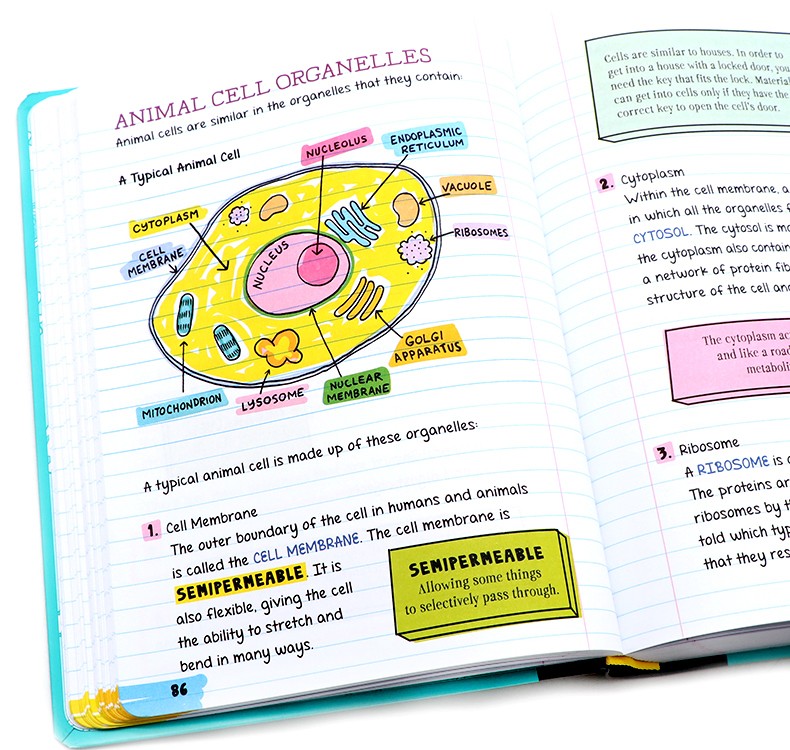 ANIMAL CELL ORGANELLES
Animal cells are similar in the organelles that they contain:
A Typical Animal Cell
NUCLEOLUS
ENDOPLASMIC
RETICULUM
VACUOLE
RIBOSOMES
CYTOPLASM
CELL
MEMBRANE
NUCLEUS
GOLGI
APPARATUS
NUCLEAR
MEMBRANE
LYSOSOME
MITOCHONDRION
A typical animal cell is made up of these organelles:
1. Cell Membrane
The outer boundary of the cell in humans and animals
is called the CELL MEMBRANE. The cell membrane is
SEMIPERMEABLE. It is
also flexible, giving the cell
the ability to stretch and
bend in many ways.
SEMIPERMEABLE
Allowing some things
to selectively pass through.
86
Cells are similar to houses. In order to
get into a house with a locked door, you
need the key that fits the lock.
can get into cells only if they have the
correct key to open the cell's door.
2. Cytoplasm
Within the cell membrane, a
in which all the organelles
CYTOSOL. The cytosol is
the cytoplasm also
a network of protein
structure of the cell
The cytoplasm
and like a
3. Ribosome
A RIBOSOME is
The proteins
ribosomes by
told which
that they